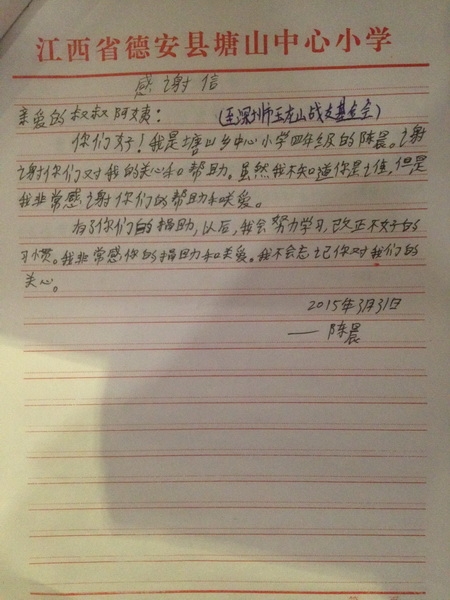 江西省德安县塘山中心小学
感谢信
亲爱的叔叔阿姨： 龙山战友基金会)
你们好！我是塘山乡中心小学四年级的陈晨。谢
谢你们对我的关心和帮助。虽然我不知道你是谁，但是
我非常感谢你们的帮助和关爱。
有了你们的捐助，以后，我会努力学习，改正不好的
习惯。我非常感你的捐助和关爱。我不会忘记你对我们的
关心。
2015年3月31日
——陈晨